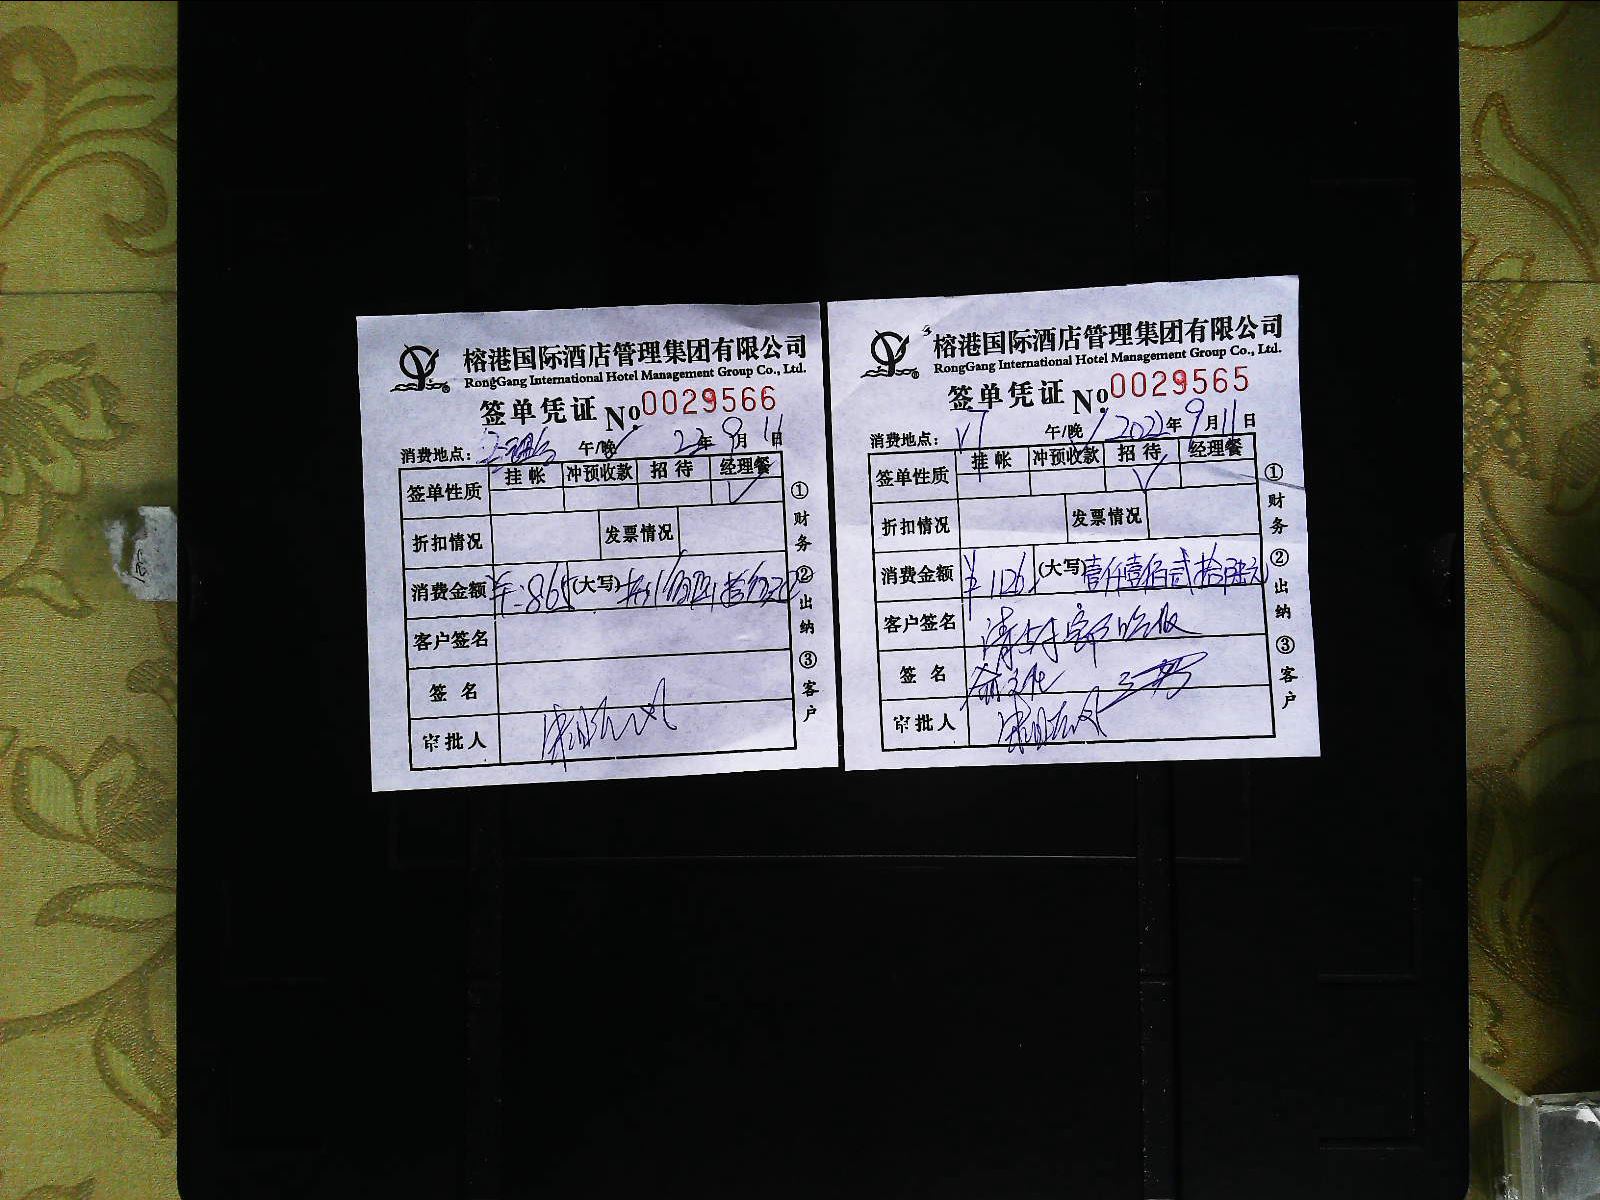 榕港国际酒店管理集团有限公司
RongGang International Hotel Management Group Co., Ltd.
签单凭证 No. 0029566
消费地点: 午/晚 22年9月11日
签单性质 挂帐 冲预收款 招待 经理餐
折扣情况 发票情况
消费金额 ¥:865 (大写)
客户签名
签名
审批人
①财务 ②出纳 ③客户
榕港国际酒店管理集团有限公司
RongGang International Hotel Management Group Co., Ltd.
签单凭证 No. 0029565
消费地点: V7 午/晚 2022年9月11日
签单性质 挂帐 冲预收款 招待 经理餐
折扣情况 发票情况
消费金额 ¥1126 (大写)壹仟壹佰贰拾陆元
客户签名
签名
审批人
①财务 ②出纳 ③客户